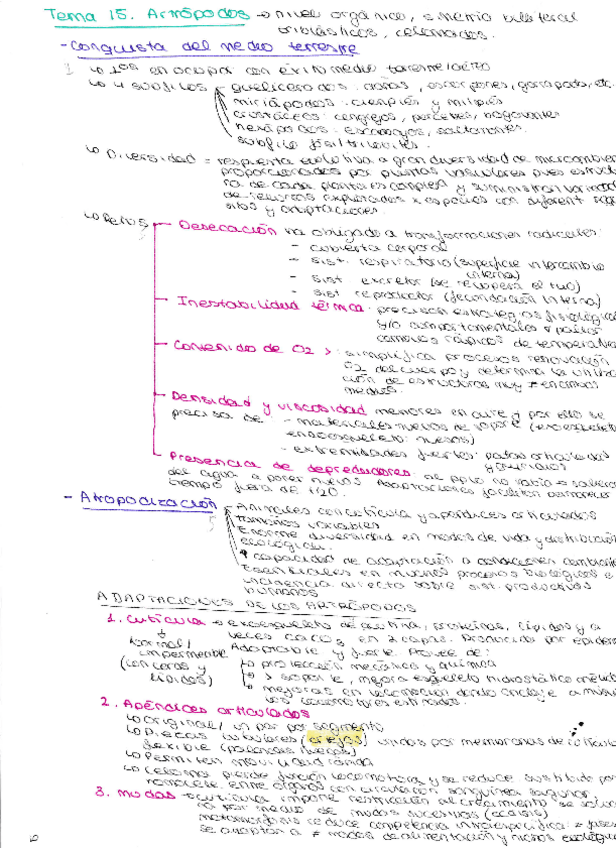 Tema 15. Artrópodos → nivel orgánico, simetría bilateral
triblásticos, celomados.
- Conquista del medio terrestre
↳ 1os en ocupar con éxito medio terrestre
↳ 4 subfilos quelicerados: arañas, escorpiones, garrapata, etc.
miriápodos: ciempiés y milpiés
crustáceos: cangrejos, percebes, bogavantes
hexápodos: escarabajos, saltamontes.
subfilo fósil trilobites.
↳ Diversidad = respuesta evolutiva a gran diversidad de
proporcionados por plantas vasculares pues
de cada planta es compleja y suministran
de recursos explotados x especies con diferent
y adaptaciones.
↳ Retos Desecación ha obligado a transformaciones radicales:
- cubierta corporal
- sist. respiratorio (superficie intercambio
interna)
- sist excretor (se recupera el H2O)
- sist reproductor (fecundación interna)
Inestabilidad térmica: precisan estrategias
y/o comportamentales x paliar
cambios rápidos de
Contenido de O2 > : simplifica procesos renovación
O2 del cuerpo y determina la
ción de estructuras muy ≠ en ambos
medios.
Densidad y viscosidad menores en aire y por ello se
precisa de - materiales nuevos de soporte
endoesqueleto: huesos)
- extremidades fuertes: patas articuladas
Presencia de depredadores al ppio no había =
del agua a poner huevos. Adaptaciones facilitan
tiempo fuera de H2O.
- Artropodización Animales con cutícula y apéndices articulados
Tamaños variables
Enorme diversidad en modos de vida y distribución
ecológica.
↑ capacidad de adaptación a condiciones
Esenciales en muchos procesos biológicos
incidencia directa sobre sist. productivos
humanos
ADAPTACIONES DE LOS ARTRÓPODOS
1. Cutícula → exoesqueleto de quitina, proteínas, lípidos y a
veces CaCO3 en 2 capas. Producida por
normal/ Adaptable y fuerte. Provee de:
impermeable ↳ protección mecánica y química
(con ceras y ↳ > soporte, mejora esqueleto hidrostático
lípidos) ↳ mejoras en locomoción dando anclaje a
locomotores estriados.
2. Apéndices articulados
↳ Original/ un par por segmento
↳ Piezas tubulares (artejos) unidos por membranas de
flexible (palancas huecas)
↳ Permiten movilidad rápida
↳ Celoma pierde función locomotora y se reduce sustituido por
hemocele entre algunos con circulación sanguínea
3. Mudas → cutícula impone restricción al crecimiento se
por medio de mudas sucesivas (ecdisis)
Metamorfosis reduce competencia intraespecífica:
se adaptan a ≠ modos de alimentación y nichos